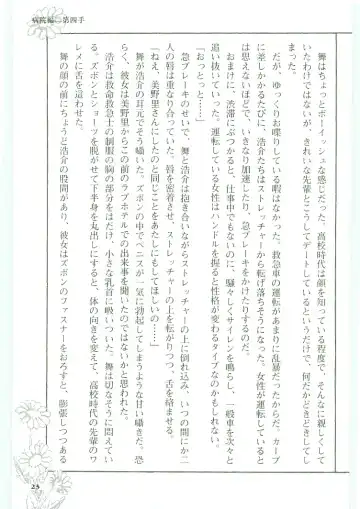 病院編――第四手
　舞はちょっとボーイッシュな感じだった。高校時代は顔を知っている程度で、そんなに親しくして
いたわけではないが、きれいな先輩とこうしてデートしているというだけで、何だかどきどきしてし
まった。
　だが、ゆっくりお喋りしている暇はなかった。救急車の運転があまりに乱暴だったからだ。カーブ
に差しかかるたびに、浩介たちはストレッチャーから転げ落ちそうになった。女性が運転していると
思えないほどで、いきなり加速したり、急ブレーキをかけたりするのだ。
　おまけに、渋滞にぶつかると、仕事中でもないのに、騒々しくサイレンを鳴らし、一般車を次々と
追い抜いていった。運転している女性はハンドルを握ると性格が変わるタイプなのかもしれない。
「おっとっと……」
　急ブレーキのせいで、舞と浩介は抱き合いながらストレッチャーの上に倒れ込み、いつの間にか二
人の唇は重なり合っていた。唇を密着させ、ストレッチャーの上を転がりつつ、舌を絡ませる。
「ねえ、美野里さんにしたのと同じことをあたしにもしてほしいの……」
　舞が浩介の耳元でそう囁いた。ズボンの中でペニスが一気に勃起してしまうような甘い囁きだ。恐
らく、彼女は美野里からこの前のラブホテルでの出来事を聞いたのではないかと思われた。
　浩介は救命救急士の制服の胸の部分をはだけ、小さな乳首に吸いついた。舞は切なそうに悶えてい
る。ズボンとショーツを脱がせて下半身を丸出しにすると、体の向きを変えて、高校時代の先輩のワ
レメに舌を這わせた。
　舞の顔の前にちょうど浩介の股間があり、彼女はズボンのファスナーをおろすと、膨張しつつある
23